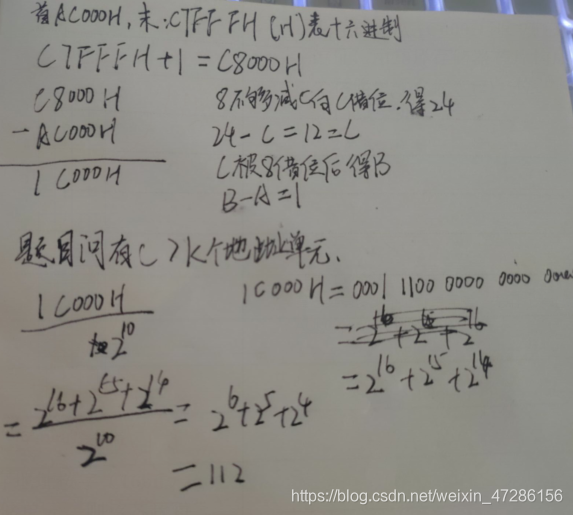 首ACOOOH,末:C7FFFH (H)表十六进制
C7FFFH+1=C8000H
C8000H 8不够减C向C借位,得24
-AC000H 24-C=12=C
1C000H C被8借位后得B
B-A=1
题目问有( )K个地址单元、
1C000H 1C000H=0001 1100 0000 0000 0000
2^10
=2^16+2^15+2^14
=2^16+2^15+2^14 / 2^10 = 2^6+2^5+2^4
=112
https://blog.csdn.net/weixin_47286156